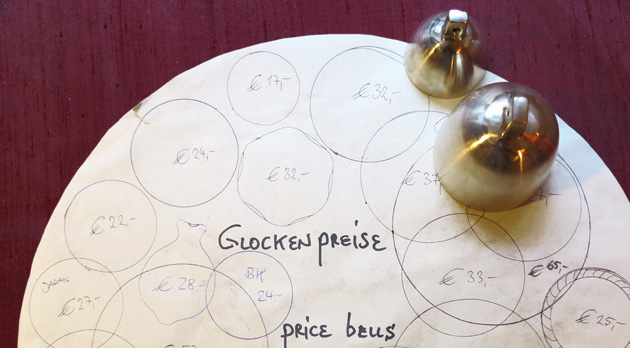 € 17,-
€ 32,-
€ 24,-
€ 32,-
€ 22,-
GLOCKENPREISE
€ 33,-
€ 65,-
BH
24,-
JAPAN
€ 27,-
€ 28,-
€ 25,-
price bells